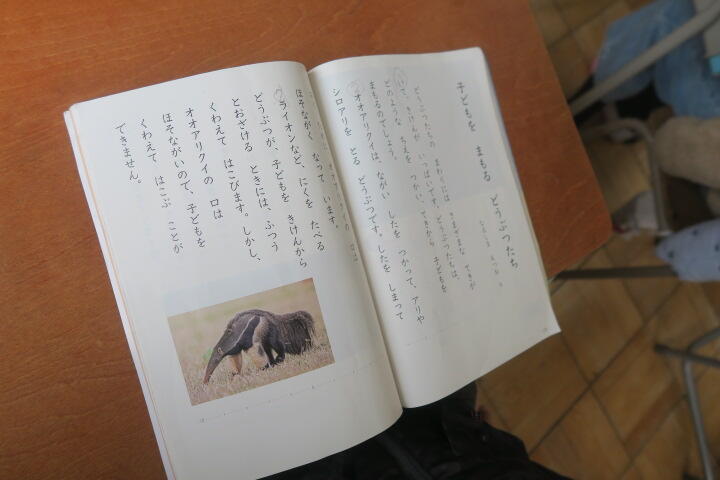 子どもを まもる どうぶつたち
どうぶつたちの まわりには さまざまな てきが
いて、きけんが いっぱいです。どうぶつたちは、
どのような ちえを つかい、てきから 子どもを
まもるのでしょう。
オオアリクイは、ながい したを つかって、アリや
シロアリを とる どうぶつです。したを しまって
オオアリクイの 口は
ほそながく なって います。
ライオンなど、にくを たべる
どうぶつが、子どもを きけんから
とおざける ときには、ふつう
くわえて はこびます。しかし、
オオアリクイの 口は
ほそながいので、子どもを
くわえて はこぶ ことが
できません。